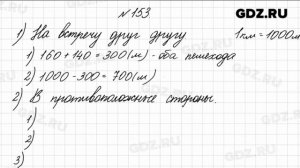 GDZ.RU
№ 153
1) На встречу друг другу
1 км = 1000 м
1) 160 + 140 = 300 (м) - оба пешехода
2) 1000 - 300 = 700 (м)
2) В противоположные стороны.
1)
2)
3)
GDZ.RU